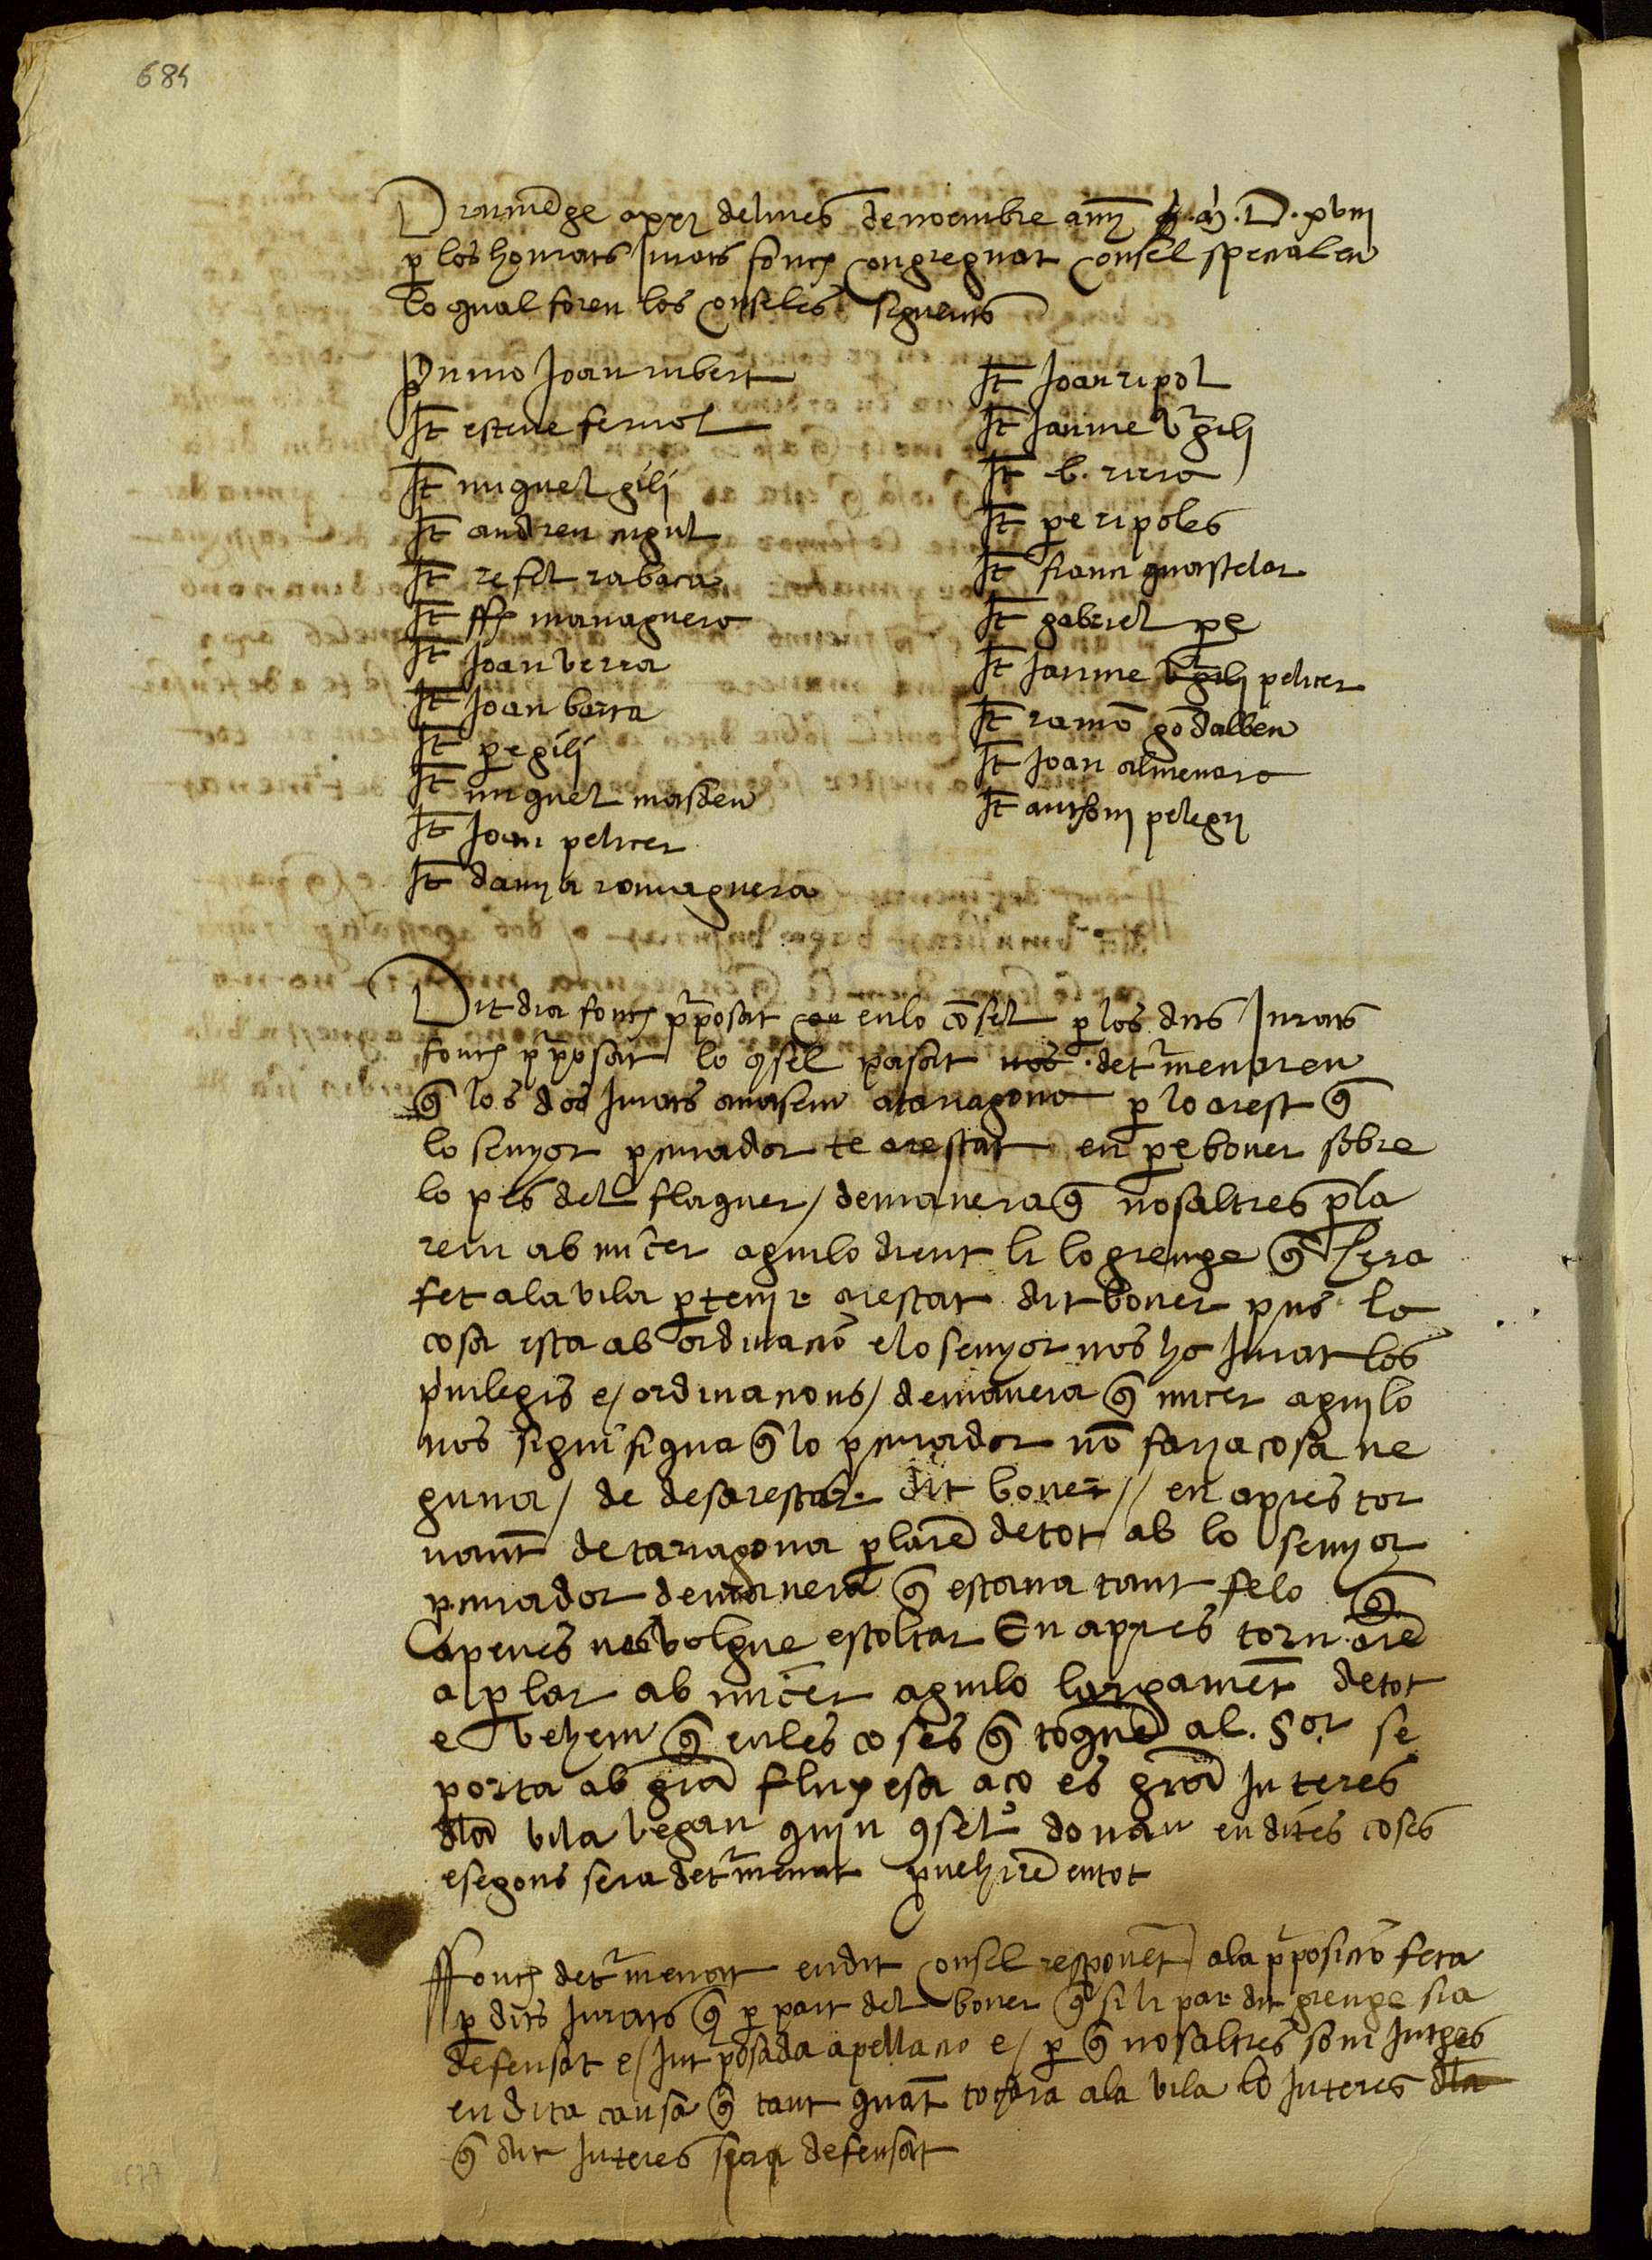 684
Diumẽge a xxj del mes de noembre any M.D.xviii
p̱ los honrats Jurats fonch congreguat consel spesial en
lo qual foren los conseles seguents
Primo Joan rubert
It esteve ferriol
It miquel gilj
It andreu
It refel rabaca
It ffrc romaguera
It Joan verra
It Joan barra
It pe gilj
It miquel masdeu
It Joan pelicer
It damia romaguera
It Joan ripol
It Jaume v̓gilj
It b. riera
It pe ripoles
It franci guastelar
It gabriel pe
It Jaume v̓gilj pelicer
It ramõ godalbeu
It Joan almenara
It anthonj pelegrj
Dit dia fonch p̱posat en lo cõsel p̱ los dits Jurats
fonch p̱posat lo cõsel pasat nos det̓menaren
q̃ los dos Jurats anasem a taragona p̱ lo arest q̃
lo senyor p̱curador te arestat en pe boner sobre
lo pes del flaquer / de manera q̃ nosaltres p̱la
rem ab micer aguilo dient li lo greuge q̃ sera
fet a la vila p̱ tenir arestat dit boner pus la
cosa esta ab ordinacio e lo senyor nos ha Jurat los
p̱vilegis e / ordinacions / de manera q̃ micer aguilo
nos significa q̃ lo p̱curador nõ faria cosa ne
guna / de desarestar dit boner // en apres tor
nant de taragona p̱larẽ de tot ab lo senyor
p̱curador de manera q̃ estava tant felo q̃
apenes nos volgue escoltar En apres tornarẽ
a p̱lar ab micer aguilo largamẽt de tot
e vehem q̃ en les coses q̃ toquẽ al Sor se
porta ab grã fluxesa aço es grã Interes
dla vila vegan quin cõsel donan en dites coses
e segons sera det̓menat p̱vehirẽ en tot
ffonch det̓menat en dit consel responẽt a la p̱posicio feta
p̱ dits Jurats q̃ p̱ part del boner q̃ si li par dit greuge sia
defensat e / Int̓posada apellacio e / p̱ q̃ nosaltres som Jutges
en dita causa q̃ tant quãt tocara a la vila lo Interes dla
q̃ dit Interes sera defensat